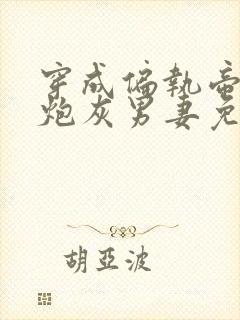 穿成偏执帝
炮灰男妻免
胡亚波